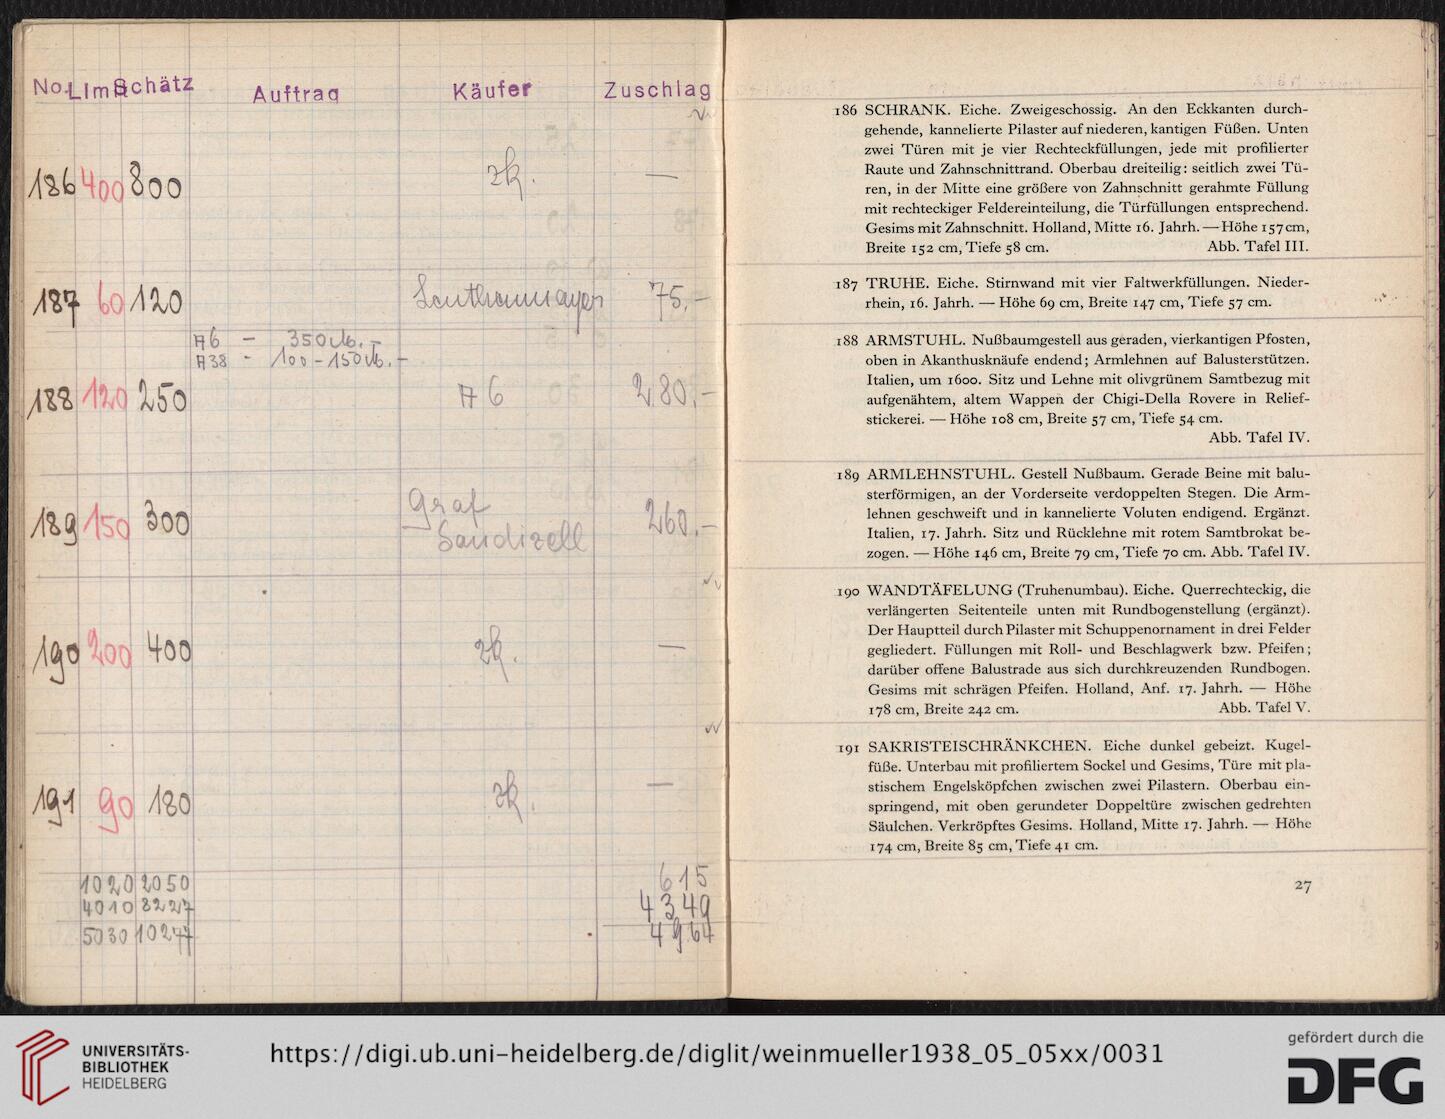 No. Limit Schätz Auftrag Käufer Zuschlag
186 400 800 zk. —
187 60 120 75,-
A6 - 350 M. -
A38 - 100 - 150 M. -
188 120 250 A 6 280,-
189 150 300 Graf Sandizell 260,-
190 200 400 zk. —
191 90 180 zk. —
1020 2050 615
4010 8227 4349
5030 10277 4964
186 SCHRANK. Eiche. Zweigeschossig. An den Eckkanten durch-
gehende, kannelierte Pilaster auf niederen, kantigen Füßen. Unten
zwei Türen mit je vier Rechteckfüllungen, jede mit profilierter
Raute und Zahnschnittrand. Oberbau dreiteilig: seitlich zwei Tü-
ren, in der Mitte eine größere von Zahnschnitt gerahmte Füllung
mit rechteckiger Feldereinteilung, die Türfüllungen entsprechend.
Gesims mit Zahnschnitt. Holland, Mitte 16. Jahrh. — Höhe 157 cm,
Breite 152 cm, Tiefe 58 cm. Abb. Tafel III.
187 TRUHE. Eiche. Stirnwand mit vier Faltwerkfüllungen. Nieder-
rhein, 16. Jahrh. — Höhe 69 cm, Breite 147 cm, Tiefe 57 cm.
188 ARMSTUHL. Nußbaumgestell aus geraden, vierkantigen Pfosten,
oben in Akanthusknäufe endend; Armlehnen auf Balusterstützen.
Italien, um 1600. Sitz und Lehne mit olivgrünem Samtbezug mit
aufgenähtem, altem Wappen der Chigi-Della Rovere in Relief-
stickerei. — Höhe 108 cm, Breite 57 cm, Tiefe 54 cm.
Abb. Tafel IV.
189 ARMLEHNSTUHL. Gestell Nußbaum. Gerade Beine mit balu-
sterförmigen, an der Vorderseite verdoppelten Stegen. Die Arm-
lehnen geschweift und in kannelierte Voluten endigend. Ergänzt.
Italien, 17. Jahrh. Sitz und Rücklehne mit rotem Samtbrokat be-
zogen. — Höhe 146 cm, Breite 79 cm, Tiefe 70 cm. Abb. Tafel IV.
190 WANDTÄFELUNG (Truhenumbau). Eiche. Querrechteckig, die
verlängerten Seitenteile unten mit Rundbogenstellung (ergänzt).
Der Hauptteil durch Pilaster mit Schuppenornament in drei Felder
gegliedert. Füllungen mit Roll- und Beschlagwerk bzw. Pfeifen;
darüber offene Balustrade aus sich durchkreuzenden Rundbogen.
Gesims mit schrägen Pfeifen. Holland, Anf. 17. Jahrh. — Höhe
178 cm, Breite 242 cm. Abb. Tafel V.
191 SAKRISTEISCHRÄNKCHEN. Eiche dunkel gebeizt. Kugel-
füße. Unterbau mit profiliertem Sockel und Gesims, Türe mit pla-
stischem Engelsköpfchen zwischen zwei Pilastern. Oberbau ein-
springend, mit oben gerundeter Doppeltüre zwischen gedrehten
Säulchen. Verkröpftes Gesims. Holland, Mitte 17. Jahrh. — Höhe
174 cm, Breite 85 cm, Tiefe 41 cm.
27
UNIVERSITÄTS-
BIBLIOTHEK
HEIDELBERG
https://digi.ub.uni-heidelberg.de/diglit/weinmueller1938_05_05xx/0031
gefördert durch die
DFG